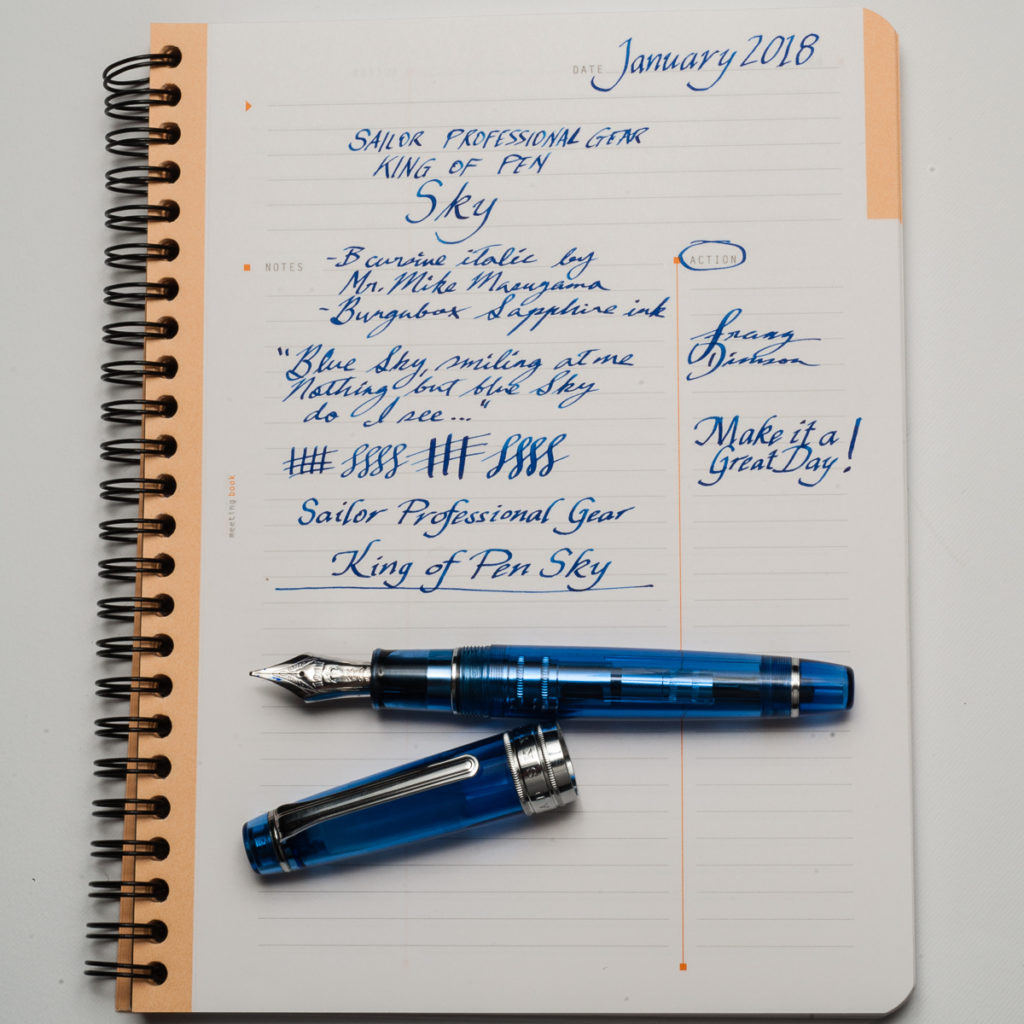 DATE January 2018
SAILOR PROFESSIONAL GEAR
KING OF PEN
Sky
NOTES
-B cursive italic by
Mr. Mike Masuyama
-Bungubox Sapphire ink
"Blue Sky, smiling at me
Nothing but blue Sky
do I see..."
Sailor Professional Gear
King of Pen Sky
ACTION
Dimson
Make it a
Great Day!
meeting book